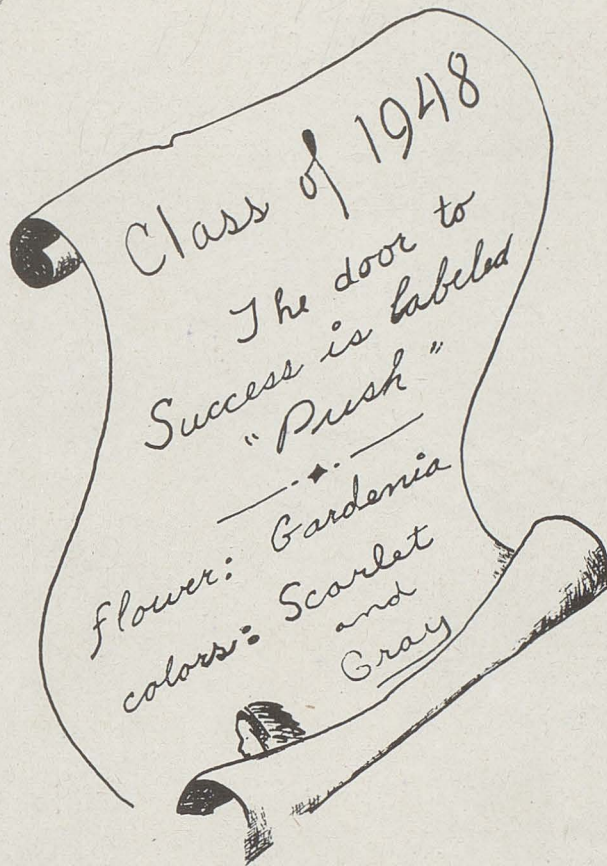 Class of 1948
The door to
Success is labeled
"Push"
flower: Gardenia
colors: Scarlet
and
Gray